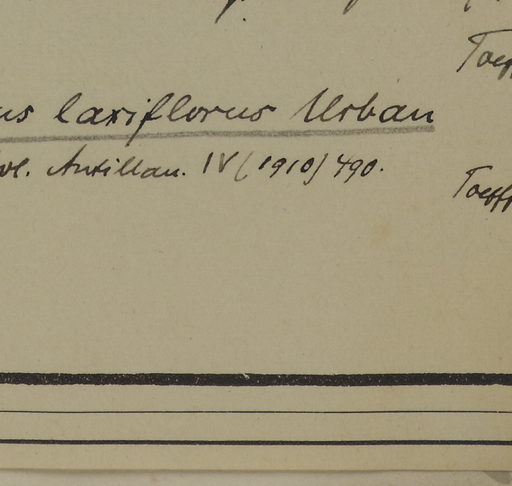 us laxiflorus Urban
ol. Antillan. IV (1910) 490.
Toepff
Toepff